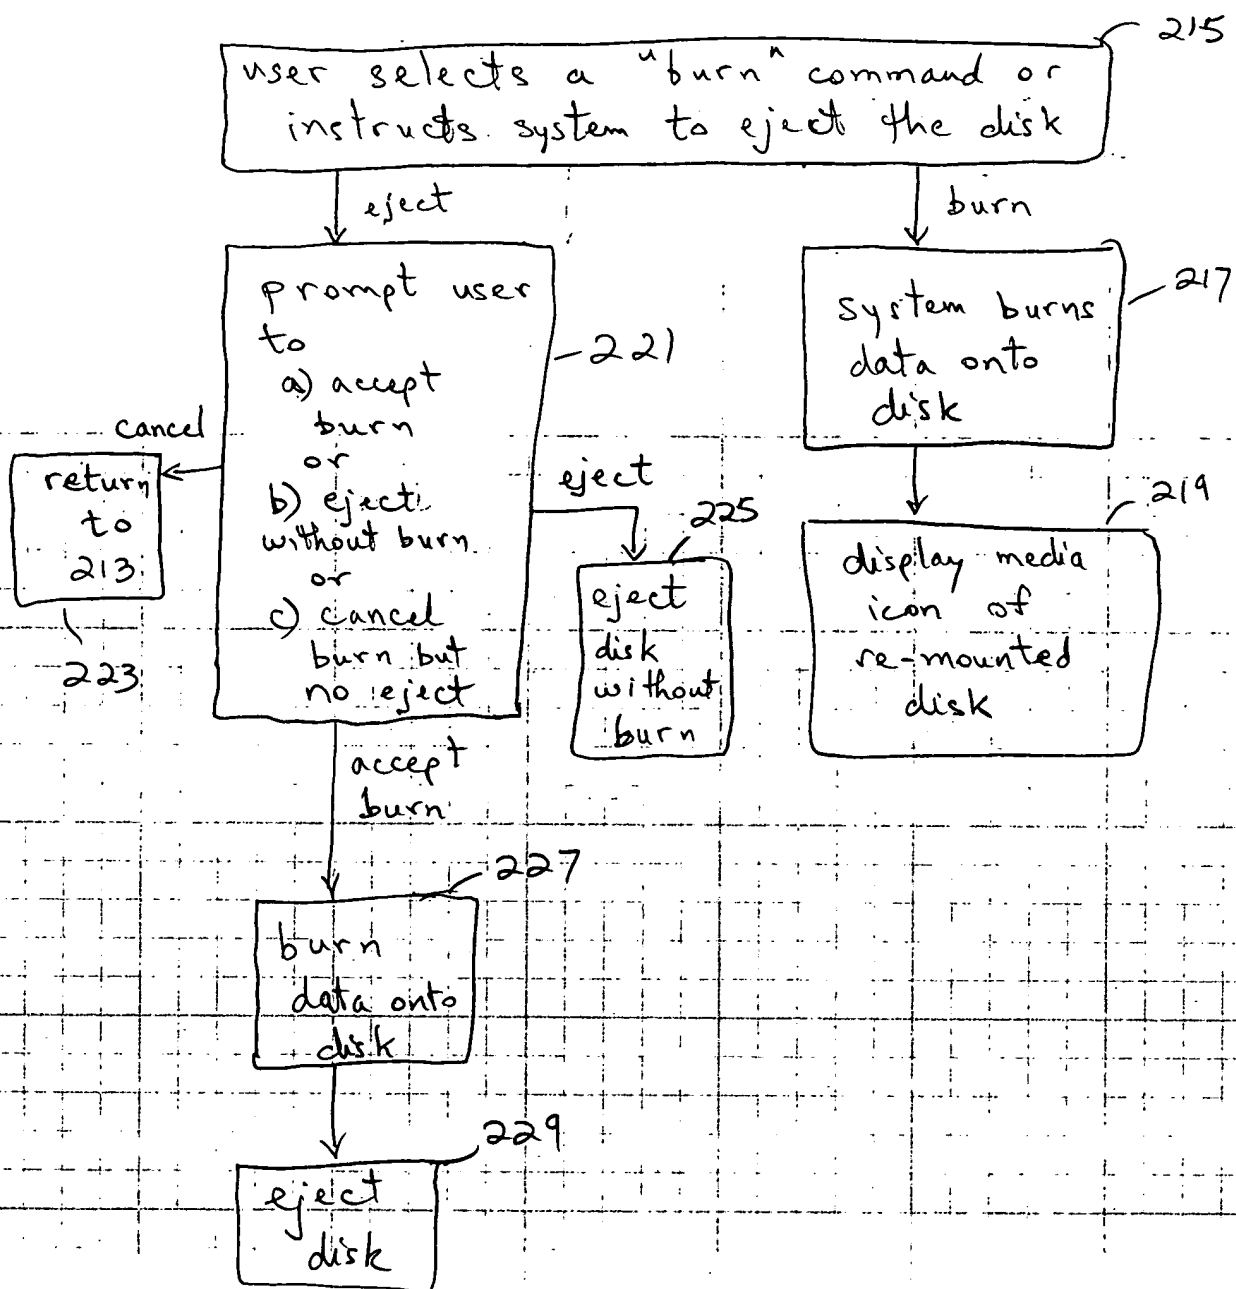 215
user selects a "burn" command or
instructs system to eject the disk
eject
burn
prompt user
to
a) accept
burn
or
b) eject
without burn
or
c) cancel
burn but
no eject
221
system burns
data onto
disk
217
cancel
return
to
213
223
eject
225
eject
disk
without
burn
219
display media
icon of
re-mounted
disk
accept
burn
227
burn
data onto
disk
229
eject
disk